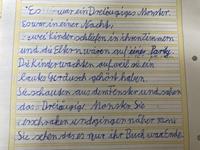 "Es war ein Dreiäugiges Monster.
Es war in einer Nacht,
zwei Kinder schliefen in ihren Zimmern
und die Eltern waren auf einer Party.
Die Kinder wachten auf weil sie ein
lautes Geräusch gehört haben.
Sie schauten aus dem Fenster und sahen
das Dreiäugige Monster Sie
erschraken und gingen näher ran
Sie sahen das es nur ihr Buch war